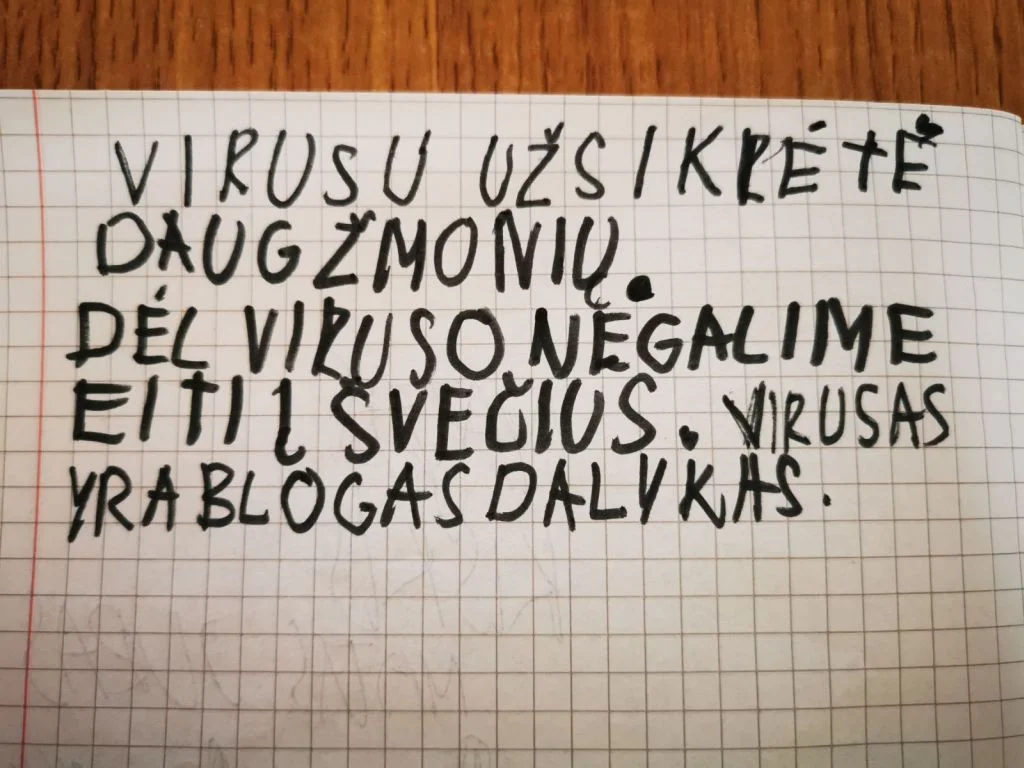 VIRUSU UŽSIKRĖTĖ
DAUG ŽMONIŲ.
DĖL VIRUSO NEGALIME
EITI Į ŠVEČIUS. VIRUSAS
YRA BLOGAS DALYKAS.